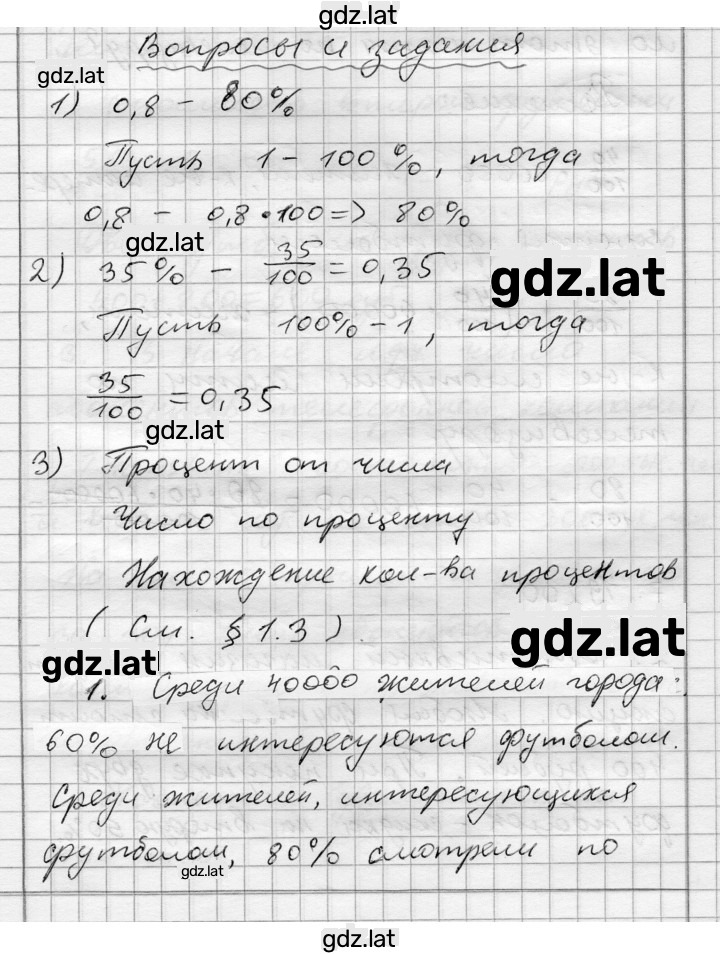 gdz.lat
Вопросы и задания
gdz.lat
1) 0,8 – 80%
Пусть 1 – 100%, тогда
0,8 – 0,8 • 100 => 80%
gdz.lat
2) 35% – 35/100 = 0,35
gdz.lat
Пусть 100% – 1, тогда
35/100 = 0,35
gdz.lat
3) Процент от числа
Число по проценту
Нахождение кол-ва процентов
(См. § 1.3).
gdz.lat
gdz.lat
1. Среди 40000 жителей города:
60% не интересуются футболом.
Среди жителей, интересующихся
футболом, 80% смотрели по
gdz.lat
gdz.lat